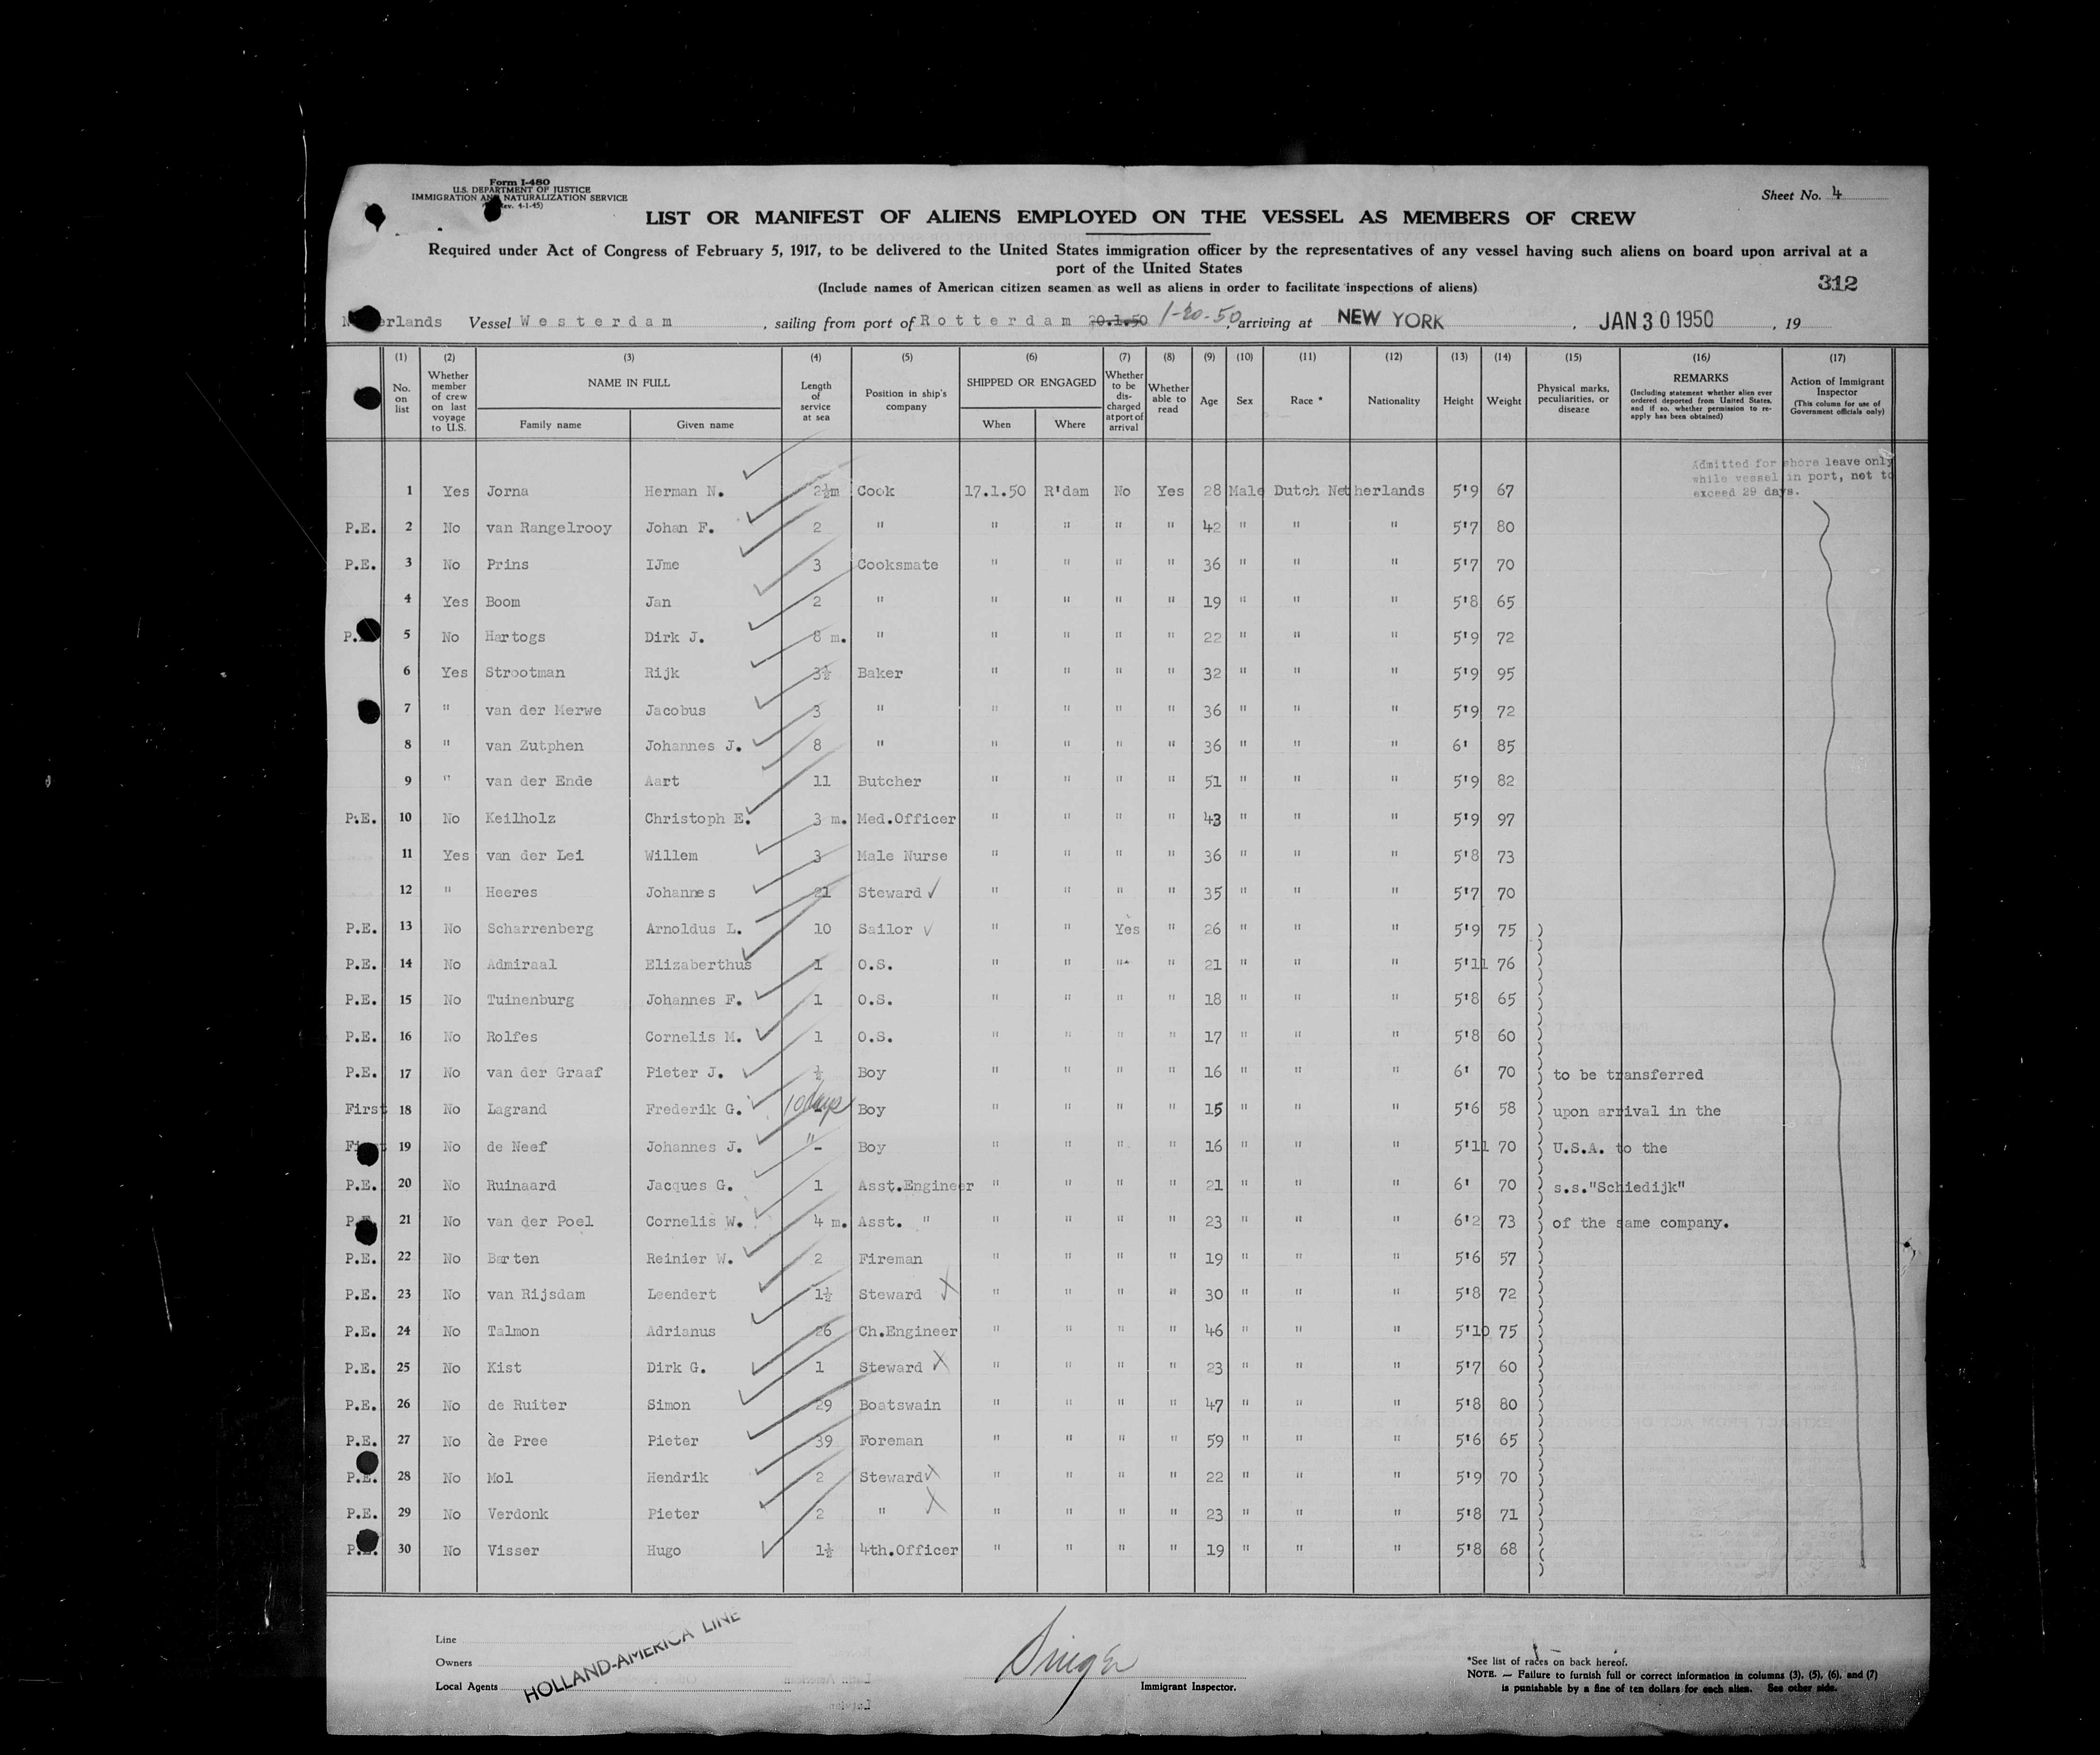 Form I-480
U.S. DEPARTMENT OF JUSTICE
IMMIGRATION AND NATURALIZATION SERVICE
Rev. 4-1-45)
Sheet No. 4
LIST OR MANIFEST OF ALIENS EMPLOYED ON THE VESSEL AS MEMBERS OF CREW
Required under Act of Congress of February 5, 1917, to be delivered to the United States immigration officer by the representatives of any vessel having such aliens on board upon arrival at a
port of the United States
312
(Include names of American citizen seamen as well as aliens in order to facilitate inspections of aliens)
Netherlands Vessel Westerdam, sailing from port of Rotterdam 20.1.50 1-20-50, arriving at NEW YORK, JAN 30 1950, 19
(1) (2) (3) (4) (5) (6) (7) (8) (9) (10) (11) (12) (13) (14) (15) (16) (17)
No. on list Whether member of crew on last voyage to U.S. NAME IN FULL Family name Given name Length of service at sea Position in ship's company SHIPPED OR ENGAGED When Where Whether to be discharged at port of arrival Whether able to read Age Sex Race * Nationality Height Weight Physical marks, peculiarities, or disease REMARKS (Including statement whether alien ever ordered deported from United States, and if so, whether permission to reapply has been obtained) Action of Immigrant Inspector (This column for use of Government officials only)
Admitted for shore leave only
while vessel in port, not to
exceed 29 days.
1 Yes Jorna Herman N. 2½m Cook 17.1.50 R'dam No Yes 28 Male Dutch Netherlands 5'9 67
P.E. 2 No van Rangelrooy Johan F. 2 " " " " " 42 " " " 5'7 80
P.E. 3 No Prins IJme 3 Cooksmate " " " " 36 " " " 5'7 70
4 Yes Boom Jan 2 " " " " " 19 " " " 5'8 65
P. 5 No Hartogs Dirk J. 8 m. " " " " " 22 " " " 5'9 72
6 Yes Strootman Rijk 3½ Baker " " " " 32 " " " 5'9 95
7 " van der Merwe Jacobus 3 " " " " " 36 " " " 5'9 72
8 " van Zutphen Johannes J. 8 " " " " " 36 " " " 6' 85
9 " van der Ende Aart 11 Butcher " " " " 51 " " " 5'9 82
P.E. 10 No Keilholz Christoph E. 3 m. Med.Officer " " " " 43 " " " 5'9 97
11 Yes van der Lei Willem 3 Male Nurse " " " " 36 " " " 5'8 73
12 " Heeres Johannes 21 Steward " " " " 35 " " " 5'7 70
P.E. 13 No Scharrenberg Arnoldus L. 10 Sailor " " Yes " 26 " " " 5'9 75
P.E. 14 No Admiraal Elizaberthus 1 O.S. " " " " 21 " " " 5'11 76
P.E. 15 No Tuinenburg Johannes F. 1 O.S. " " " " 18 " " " 5'8 65
P.E. 16 No Rolfes Cornelis M. 1 O.S. " " " " 17 " " " 5'8 60
P.E. 17 No van der Graaf Pieter J. ½ Boy " " " " 16 " " " 6' 70 to be transferred
First 18 No Lagrand Frederik G. 10 days Boy " " " " 15 " " " 5'6 58 upon arrival in the
First 19 No de Neef Johannes J. " - Boy " " " " 16 " " " 5'11 70 U.S.A. to the
P.E. 20 No Ruinaard Jacques G. 1 Asst.Engineer " " " " 21 " " " 6' 70 s.s."Schiedijk"
P.E. 21 No van der Poel Cornelis W. 4 m. Asst. " " " " " 23 " " " 6'2 73 of the same company.
P.E. 22 No Barten Reinier W. 2 Fireman " " " " 19 " " " 5'6 57
P.E. 23 No van Rijsdam Leendert 1½ Steward " " " " 30 " " " 5'8 72
P.E. 24 No Talmon Adrianus 26 Ch.Engineer " " " " 46 " " " 5'10 75
P.E. 25 No Kist Dirk G. 1 Steward " " " " 23 " " " 5'7 60
P.E. 26 No de Ruiter Simon 29 Boatswain " " " " 47 " " " 5'8 80
P.E. 27 No de Pree Pieter 39 Foreman " " " " 59 " " " 5'6 65
P.E. 28 No Mol Hendrik 2 Steward " " " " 22 " " " 5'9 70
P.E. 29 No Verdonk Pieter 2 " " " " " 23 " " " 5'8 71
P.E. 30 No Visser Hugo 1½ 4th.Officer " " " " 19 " " " 5'8 68
Line
Owners
Local Agents HOLLAND-AMERICA LINE
Singer
Immigrant Inspector.
*See list of races on back hereof.
NOTE. — Failure to furnish full or correct information in columns (3), (5), (6), and (7)
is punishable by a fine of ten dollars for each alien. See other side.